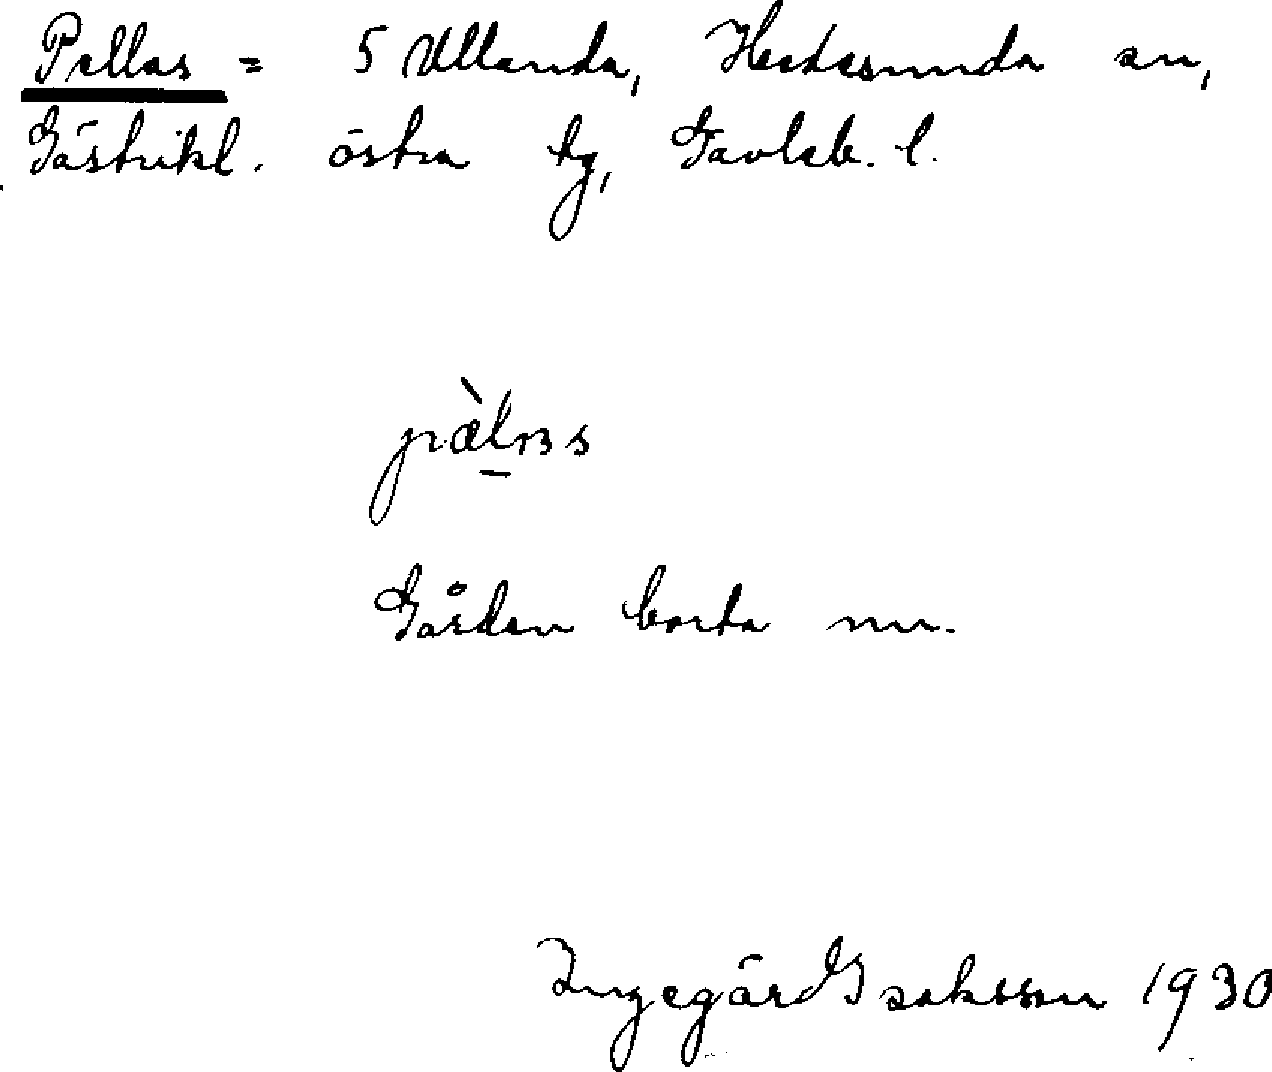 Pellas = 5 Ullanda, Hedesunda sn,
Gästrikl. östra tg, Gävleb. l.
Gården borta nu.
Ingegärd Isaksson 1930